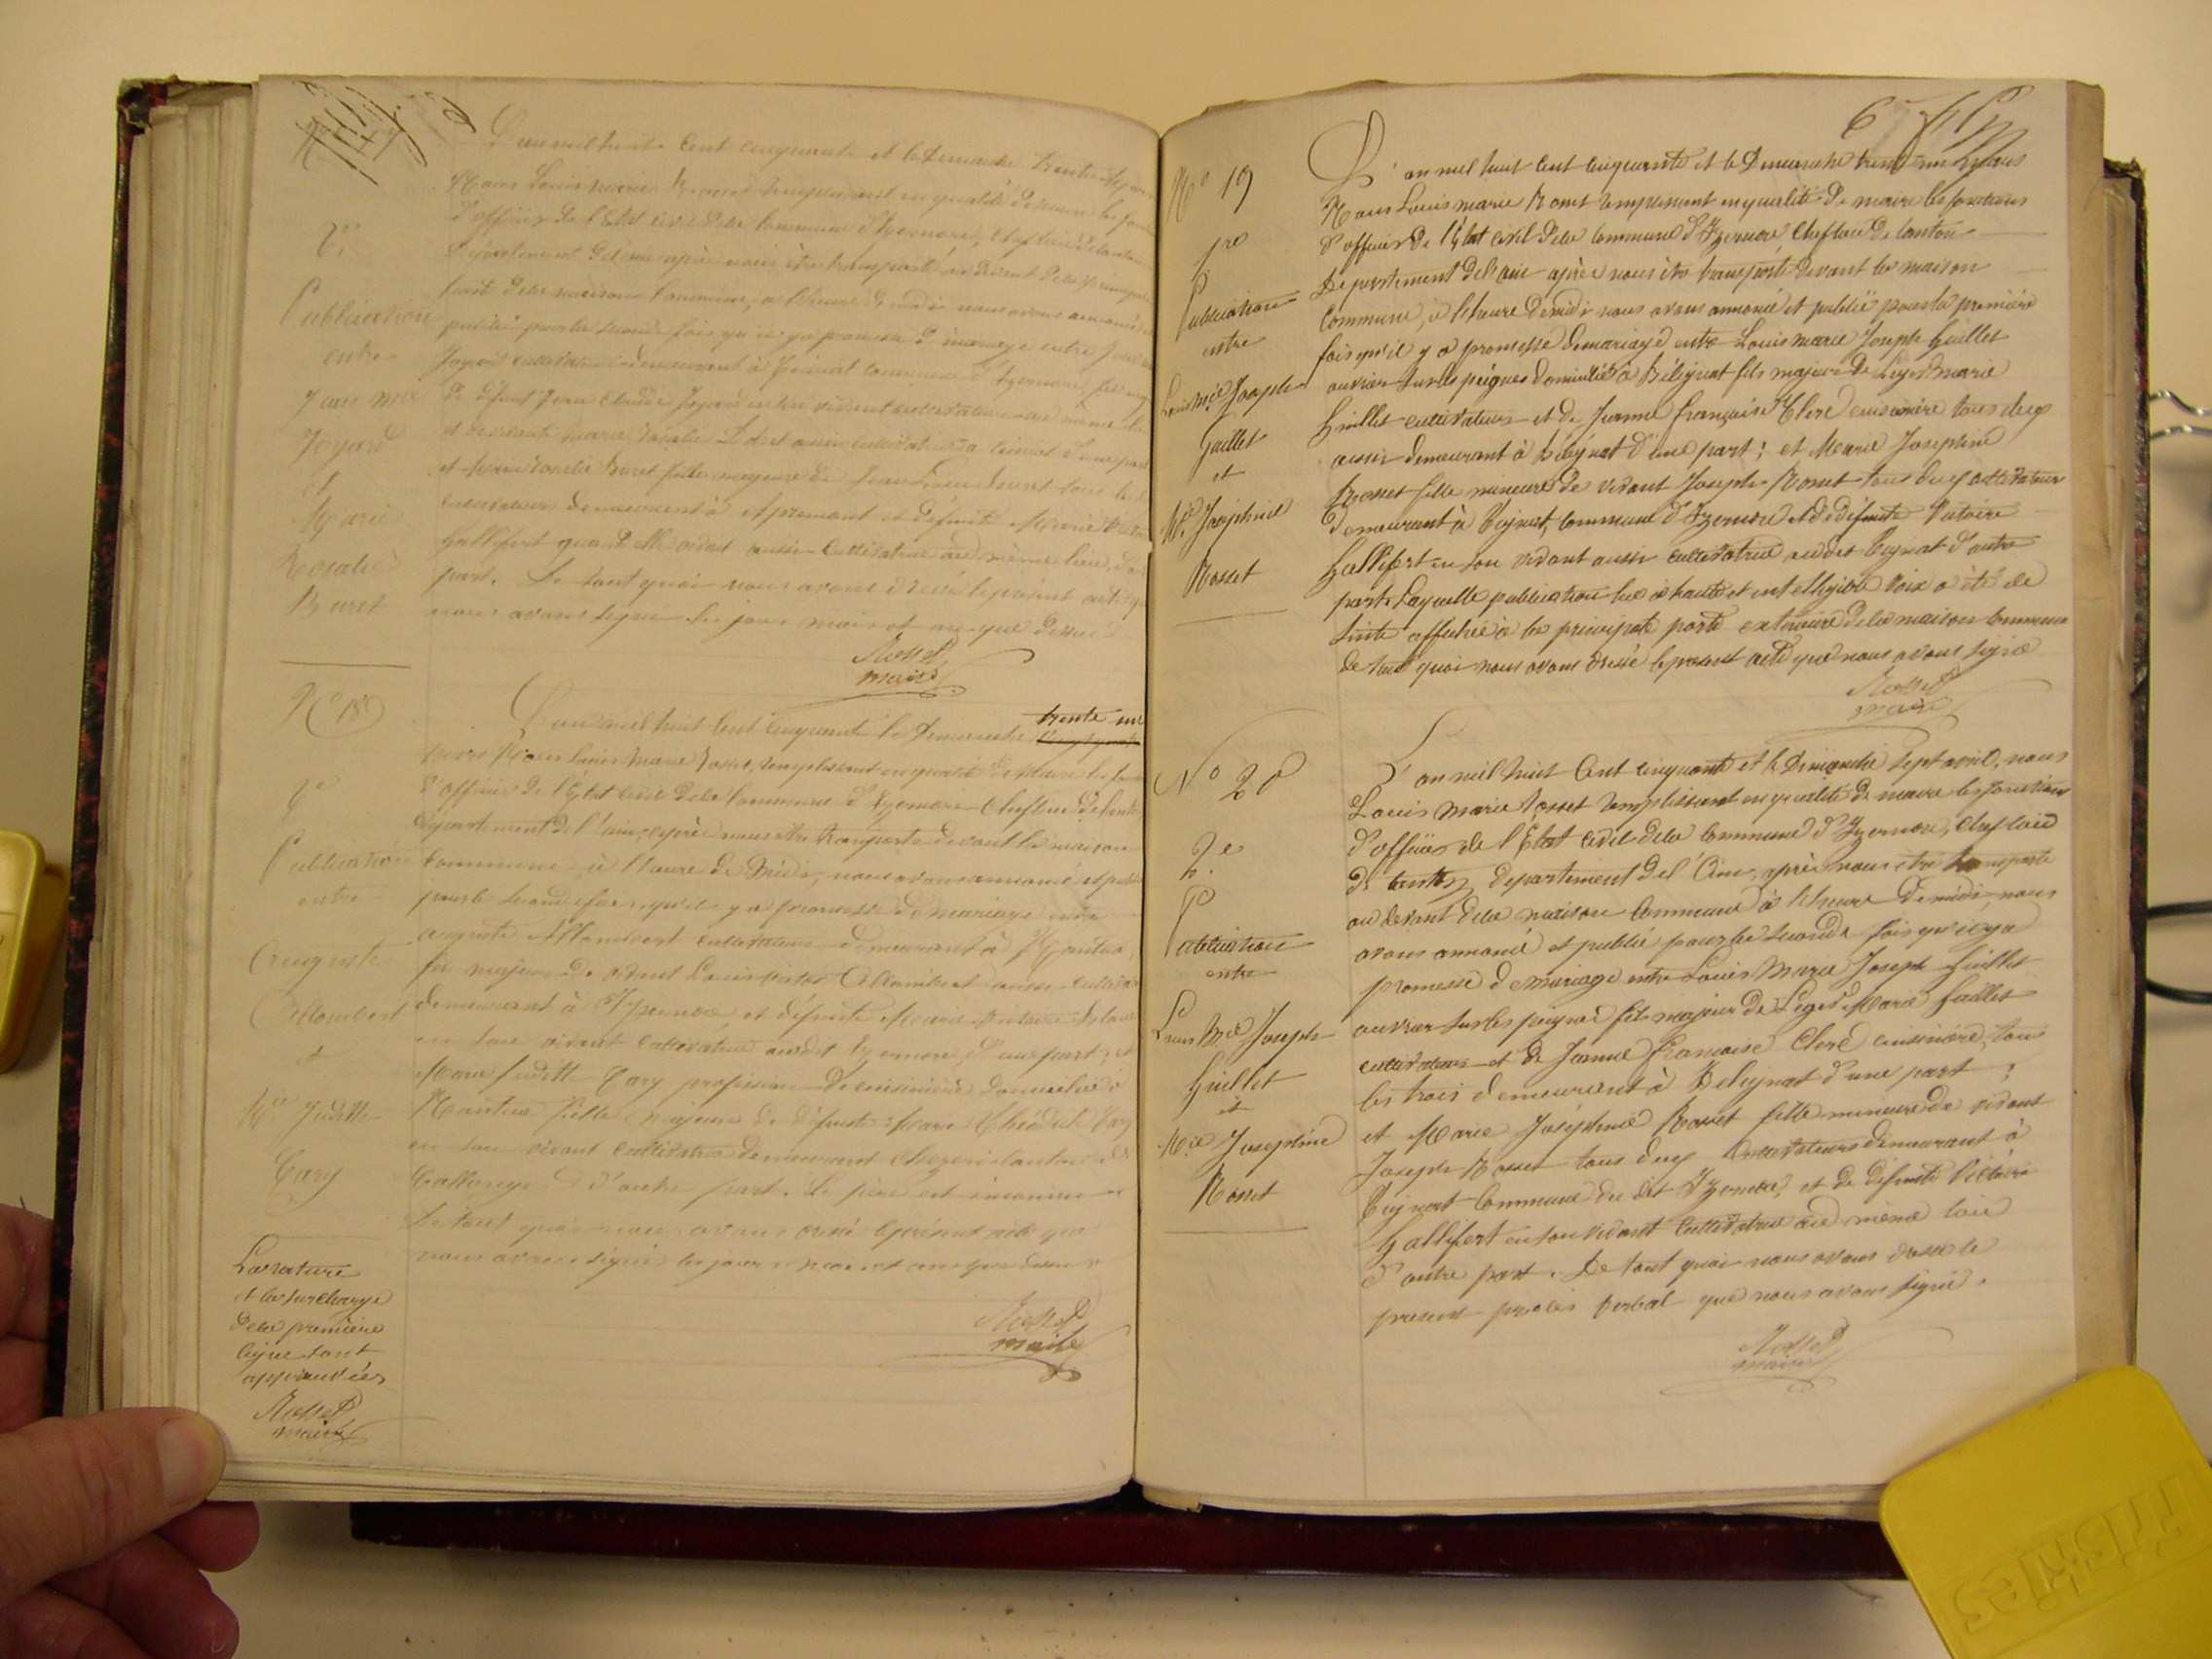 L'an mil huit Cent cinquante et le Dimanche trente
Nous Louis marie Rosset remplissant en qualité de maire les
d'officier de l'Etat civil de la Commune d'Izernore, Cheflieu de Canton
Département de l'ain après nous être transporté au devant de la principale
porte de la maison Commune, à l'heure de midi nous avons annoncé
publié pour la seconde fois qu'il y a promesse de mariage entre Jean
Joyard cultivateur demeurant à commune d'Izernore fils
de défunt Jean Claude Joyard en son vivant cultivateur au même
et Marie cultivatrice à d'une part
et Marie Rosalie Buret fille majeure de Jean Buret
cultivateur demeurant à Apremont et défunte Marie
Gallifert quand elle vivait aussi Cultivatrice au même lieu, d'
part. De tout quoi nous avons dressé le présent acte
nous avons signé les jour mois et an que dessus
Rosset
maire
2e
Publication
entre
Jean Mie
Joyard
et
Marie
Rosalie
Buret
No 18
L'an mil huit Cent cinquante le Dimanche trente un
Nous Louis Marie Rosset, remplissant en qualité de Maire les
d'officier de l'Etat Civil de la Commune d'Izernore Cheflieu de
département de l'ain, après nous être transporté devant la maison
Commune, à l'heure de Midi, nous avons annoncé et
pour la seconde fois qu'il y a promesse de mariage entre
auguste Allombert cultivateur demeurant à Nantua,
fils majeur de vivant Louis Victor Allombert aussi
demeurant à Izernore et défunte Marie
en son vivant Cultivatrice audit Izernore, d'une part; et
Marie Judith Cary profession de cuisinière domiciliée à
Nantua fille majeure de défunte Marie Cary
en son vivant Cultivatrice demeurant Canton de
d'autre part. Le père est inconnu
De tout quoi nous avons dressé le présent acte que
nous avons signé les jour mois et an que dessus
Rosset
maire
2e
Publication
entre
Auguste
Allombert
et
Mie Judith
Cary
La rature
et la surcharge
de la première
ligne sont
approuvées
Rosset
maire
6
No 19
1re
Publication
entre
Louis Mie Joseph
Guillet
et
Mie Joséphine
Rosset
L'an mil huit Cent cinquante et le Dimanche trente un Mars
Nous Louis marie Rosset remplissant en qualité de maire les fonctions
d'officier de l'Etat civil de la Commune d'Izernore, Cheflieu de Canton
Département de l'ain après nous être transporté devant la maison
Commune, à l'heure de midi nous avons annoncé et publié pour la première
fois qu'il y a promesse de mariage entre Louis marie Joseph Guillet
ouvrier sur les peignes domicilié à Béligniat fils majeur de Léger Marie
Guillet cultivateur et de Jeanne françoise Clerc cuisinière tous deux
aussi demeurant à Béligniat d'une part; et Marie Joséphine
Rosset fille mineure de vivant Joseph Rosset tous deux cultivateurs
demeurant à Ceignat, Commune d'Izernore et de défunte Victoire
Gallifert en son vivant aussi cultivatrice audit Ceignat d'autre
part. Laquelle publication lue à haute et intelligible voix a été de
suite affichée à la principale porte extérieure de la maison Commune
de tout quoi nous avons dressé le présent acte que nous avons signé
Rosset
maire
No 20
2e
Publication
entre
Louis Mie Joseph
Guillet
et
Mie Joséphine
Rosset
L'an mil huit Cent cinquante et le Dimanche sept avril, nous
Louis Marie Rosset remplissant en qualité de maire les fonctions
d'officier de l'Etat Civil de la Commune d'Izernore, Cheflieu
de Canton, département de l'Ain, après nous être transporté
au devant de la maison Commune à l'heure de midi nous
avons annoncé et publié pour la seconde fois qu'il y a
promesse de mariage entre Louis Marie Joseph Guillet
ouvrier sur les peignes fils majeur de Léger Marie Guillet
cultivateur et de Jeanne françoise Clerc cuisinière, tous
les trois demeurant à Béligniat d'une part;
et Marie Joséphine Rosset fille mineure de vivant
Joseph Rosset tous deux Cultivateurs demeurant à
Ceignat Commune du dit Izernore, et de défunte Victoire
Gallifert en son vivant Cultivatrice au même lieu
d'autre part. De tout quoi nous avons dressé le
présent procès verbal que nous avons signé.
Rosset
maire
Friskies